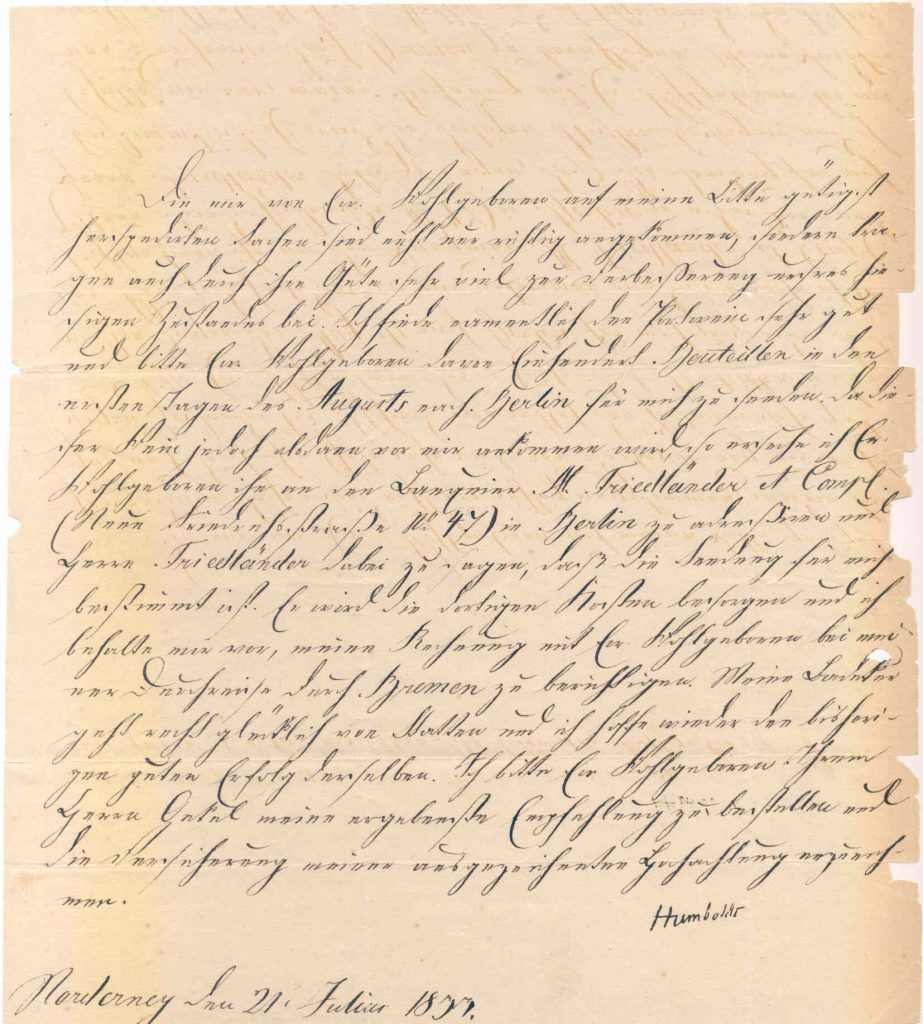 Die mir von Ew. Wohlgeboren auf meine Bitte gütigst
herspedirten Sachen sind nicht nur richtig angekommen, sondern tra-
gen auch durch ihre Güte sehr viel zur Verbesserung unsres hie-
sigen Zustandes bei. Ich finde namentlich den Portwein sehr gut
und bitte Ew. Wohlgeboren davon Einhundert Bouteillen in den
ersten Tagen des Augusts nach Berlin für mich zu senden. Da die-
ser Wein jedoch alsdann vor mir ankommen wird, so ersuche ich Ew.
Wohlgeboren ihn an den Banquier M. Friedländer et Comp.
(Neue Friedrichsstraße No. 47) in Berlin zu adressiren und
Herrn Friedländer dabei zu sagen, daß die Sendung für mich
bestimmt ist. Er wird die dortigen Kosten besorgen und ich
behalte mir vor, meine Rechnung mit Ew. Wohlgeboren bei mei-
ner Durchreise durch Bremen zu berichtigen. Meine Badekur
geht recht glücklich von Statten und ich hoffe wieder den bisheri-
gen guten Erfolg derselben. Ich bitte Ew. Wohlgeboren Ihrem
Herrn meine ergebenste Empfehlung zu bestellen und
die Versicherung meiner ausgezeichneten Hochachtung anzuneh-
men.
Humboldt
Norderney den 21. Julius 1833.